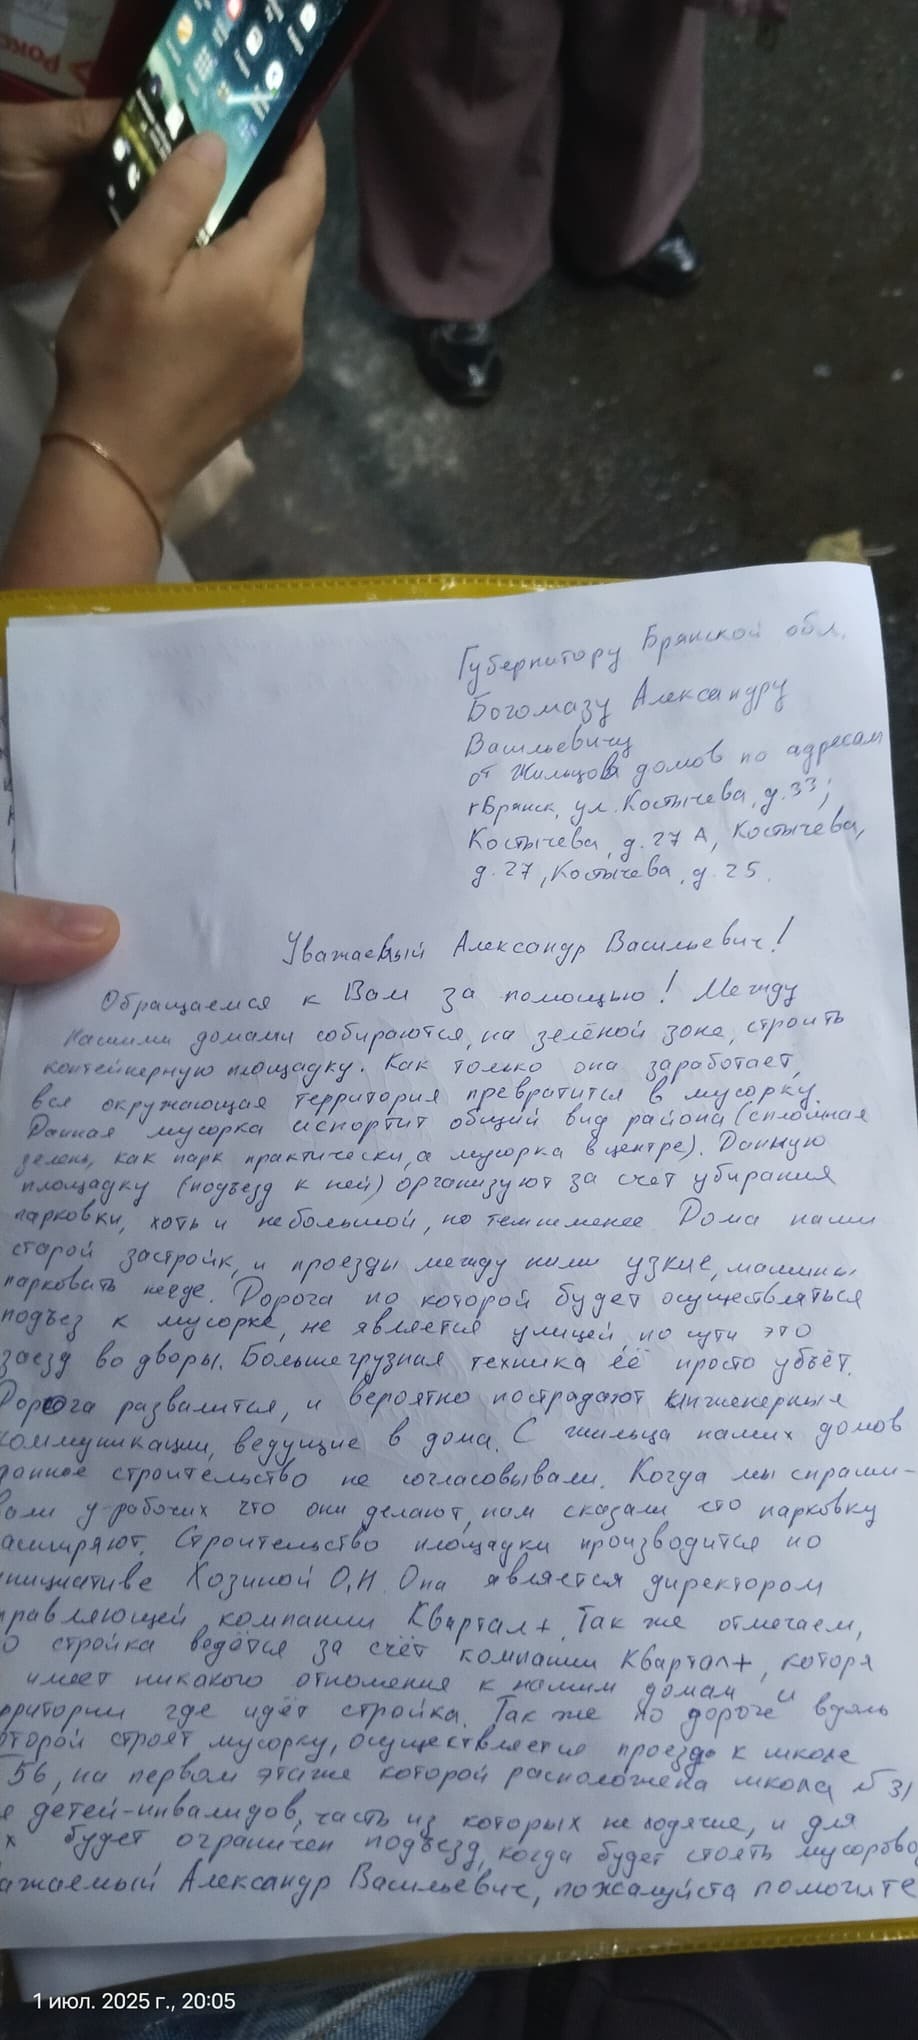 Губернитору Брянской обл.
Богомазу Александру
Васильевичу
от Жильцов домов по адресам
г Брянск, ул. Костычева, д.33;
Костычева, д.27 А, Костычева,
д.27, Костычева, д.25.
Уважаемый Александр Васильевич!
Обращаемся к Вам за помощью! Между
нашими домами собираются, на зелёной зоне, строить
контейнерную площадку. Как только она заработает,
вся окружающая территория превратится в мусорку.
Данная мусорка испортит общий вид района (сплошная
зелень, как парк практически, а мусорка в центре). Данную
площадку (подъезд к ней) организуют за счет убирания
парковки, хоть и небольшой, но темнеменее Дома наши
старой застройк, и проезды между ними узкие, машины
парковать негде. Дорога по которой будет осуществляться
подъез к мусорке, не является улицей по сути это
заезд во дворы. Большегрузная техника её просто убьёт.
Дорога развалится, и вероятно пострадают инженерные
коммуникации, ведущие в дома. С жильца наших домов
данное строительство не согласовывали. Когда мы спраши-
вали у рабочих что они делают, нам сказали что парковку
асширяют. Строительство площадки производится по
нициативе Хозиной О,Н. Она является директором
правляющей компании Квартал+. Так же отмечаем,
о стройка ведётся за счёт компании Квартал+, которя
имеет никакого отношения к нашим домам и
рритории где идёт стройка. Так же по дороге вдоль
оторой строят мусорку, осуществляется проезд к школе
56, на первом этаже которой расположена школа №31
я детей-инвалидов, часть из которых не ходячие, и для
х будет ограничен подъезд, когда будет стоять мусорово
ажаемый Александр Васильевич, пожалуйста помогите
1 июл. 2025 г., 20:05